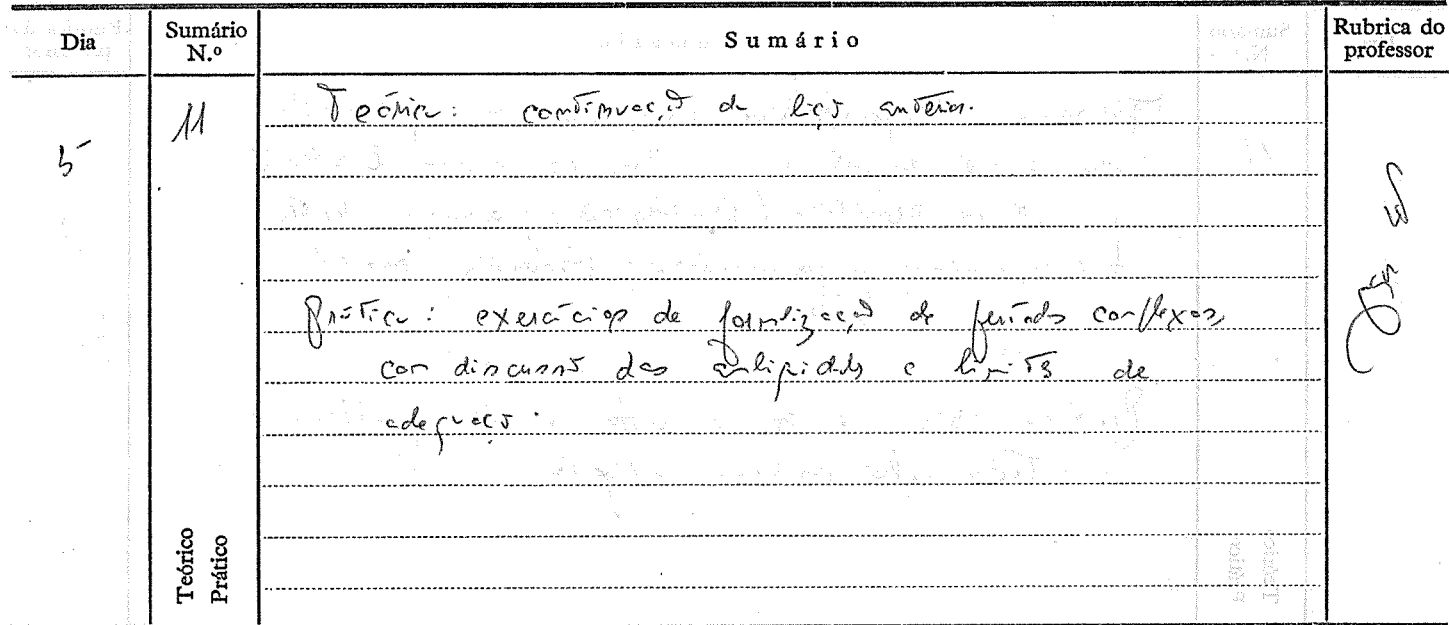 Dia
Sumário N.º
Sumário
Rubrica do professor
5
11
Teórica: continuação da lição anterior.
Prática: exercícios de formalização de períodos complexos,
com discussão das ambiguidades e limites de
adequação.
Teórico
Prático